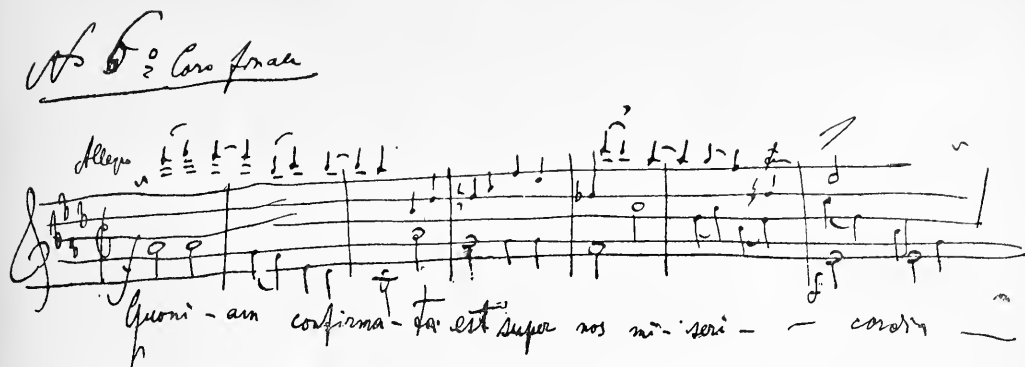 No 6: Coro finale
Allegro
Quoni - am confirma - ta est super nos mi - seri - - cordia